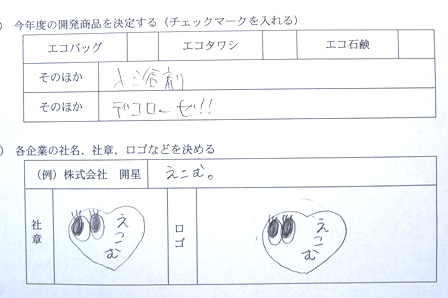 ) 今年度の開発商品を決定する（チェックマークを入れる）
エコバッグ エコタワシ エコ石鹸
そのほか 入浴剤
そのほか デコローゼ!!
) 各企業の社名、社章、ロゴなどを決める
（例）株式会社 開星 えこむ。
社章 えこむ ロゴ えこむ